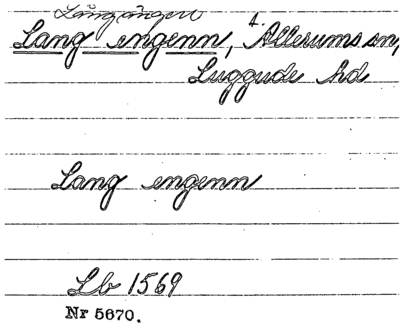 Långängen
Lang engenn, t. Allerums sn,
Luggude hd
Lang engenn
Lb 1569
Nr 5670.